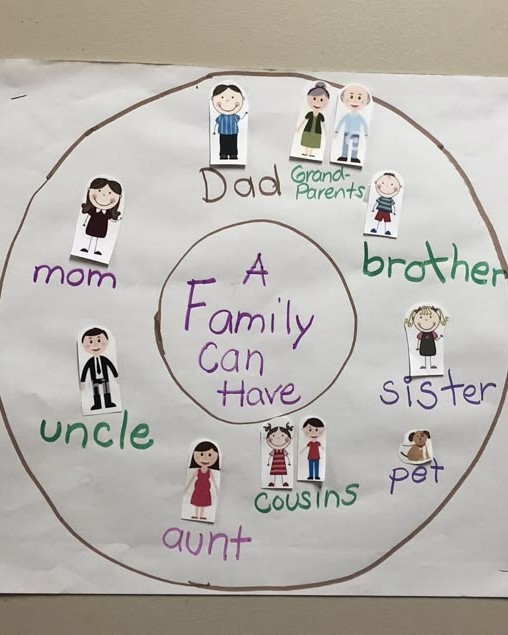 A
Family
Can
Have
Dad
Grand-
Parents
brother
sister
pet
cousins
aunt
uncle
mom